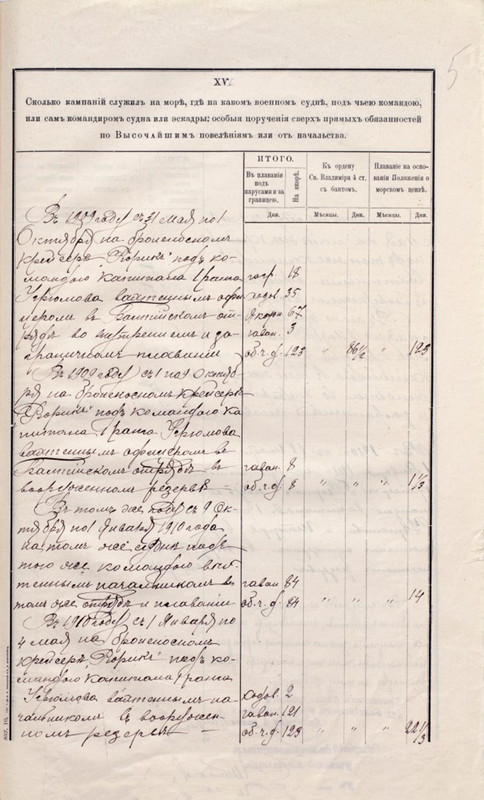 5
XV.
Сколько кампаній служилъ на морѣ, гдѣ на какомъ военномъ суднѣ, подъ чьею командою,
или самъ командиромъ судна или эскадры; особыя порученія сверхъ прямыхъ обязанностей
по Высочайшимъ повелѣніямъ или отъ начальства.
ИТОГО.
Въ плаваніи подъ парусами и за границею.
На якорѣ.
Къ ордену Св. Владиміра 4 ст. съ бантомъ.
Плаваніе на основаніи Положенія о морскомъ цензѣ.
Дни. Мѣсяцы. Дни. Мѣсяцы. Дни.
Въ 1909 году съ 31 Мая по 1
Октября на броненосномъ
крейсерѣ "Рюрикъ" подъ ко-
мандою капитана 1 ранга 18
Угрюмова вахтеннымъ офи- ходов. 35
церомъ въ Балтійскомъ от- якорн. 67
рядѣ во внутреннемъ и за- гаван. 3
граничномъ плаваніи об. ч. д. 123 " 86½ " 123
Въ 1909 году съ 1 по 9 Октяб-
ря на броненосномъ крейсерѣ
"Рюрикъ" подъ командою ка-
питана 1 ранга Угрюмова
вахтеннымъ офицеромъ въ
Балтійскомъ отрядѣ въ гаван. 8
вооруженномъ резервѣ — об. ч. д. 8 " " " 1⅓
Въ томъ же году съ 9 Ок-
тября по 1 Января 1910 года
на томъ же суднѣ подъ
тою же командою вах-
теннымъ начальникомъ въ гаван. 84
томъ же отрядѣ и плаваніи об. ч. д. 84 " " " 14
Въ 1910 году съ 1 Января по
4 мая на броненосномъ
крейсерѣ "Рюрикъ" подъ ко-
мандою капитана 1 ранга
Угрюмова вахтеннымъ на- ходов. 2
чальникомъ въ вооружен- гаван. 121
номъ резервѣ — об. ч. д. 123 " " " 22⅓